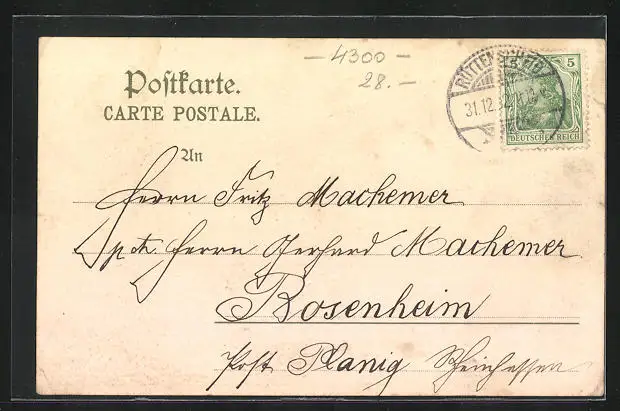 - 4300 -
28. -
Postkarte.
CARTE POSTALE.
RÜTTENSCHEID
31.12.
5
DEUTSCHES REICH
An
Herrn Fritz Machemer
Herrn Gerhard Machemer
Rosenheim
Post Planig Rheinhessen